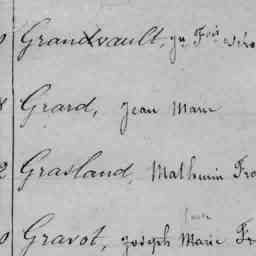 Grandvault, Jn Fois
Grard, Jean Marie
Grasland, Mathurin Fra
Gravot, Joseph Marie Fr